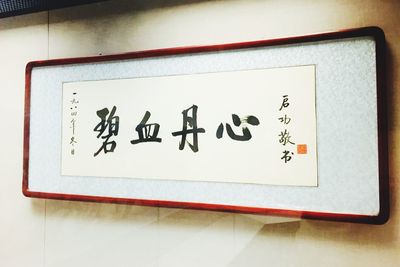 一九八四年冬日
碧血丹心
启功敬书